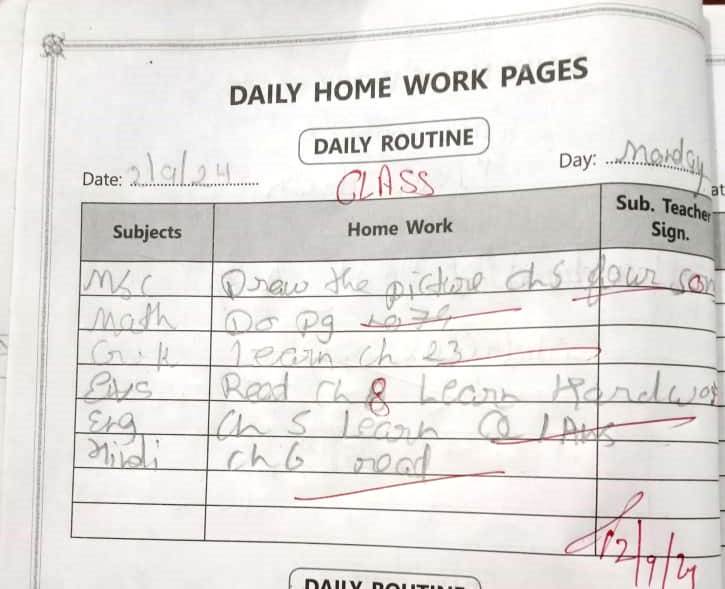 DAILY HOME WORK PAGES
DAILY ROUTINE
Date: 2/9/24 Day: Monday
CLASS
Subjects Home Work Sub. Teacher Sign.
MSC Draw the picture ch 5 four son
Math Do Pg 79
G.K learn ch 23
EVS Read Ch 8 Learn Hardwor
Eng Ch 5 learn Q/Ans
Hindi ch 6 read
12/9/24
DAILY ROUTINE